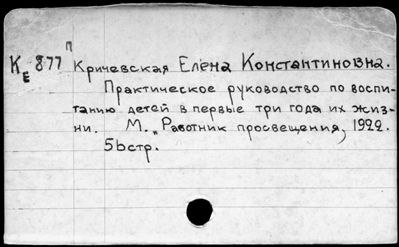 КЕ 877 П
Кричевская Елена Константиновна.
Практическое руководство по воспи-
танию детей в первые три года их жиз-
ни. М. „Работник просвещения, 1922.
56стр.